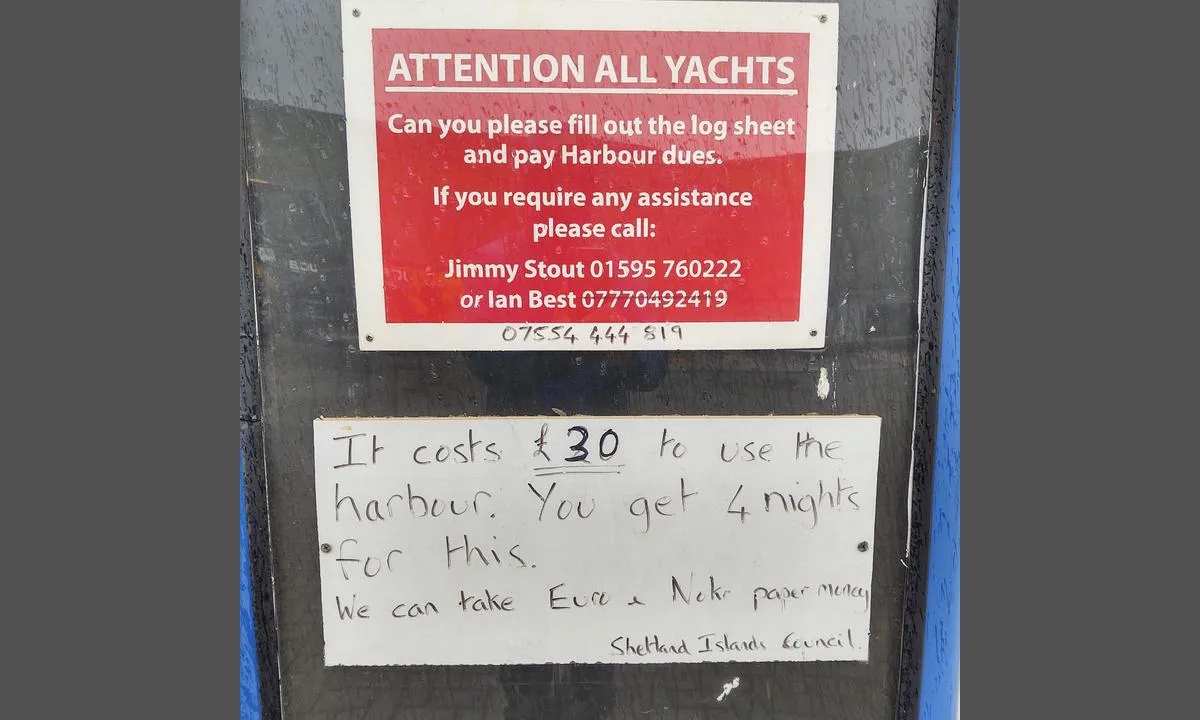 ATTENTION ALL YACHTS
Can you please fill out the log sheet
and pay Harbour dues.
If you require any assistance
please call:
Jimmy Stout 01595 760222
or Ian Best 07770492419
07554 444 819
It costs £30 to use the
harbour. You get 4 nights
for this.
We can take Euro & Nokr paper money
Shetland Islands Council.